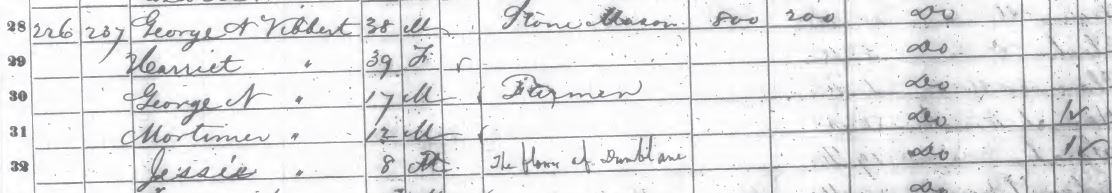 28 226 237 George N Vibbert 38 M Stone Mason 800 200 Do
29 Harriet " 39 F Do
30 George N " 17 M Farmer Do
31 Mortimer " 12 M Do 1
32 Jessie " 8 The flower of Dumblane Do 1
Do